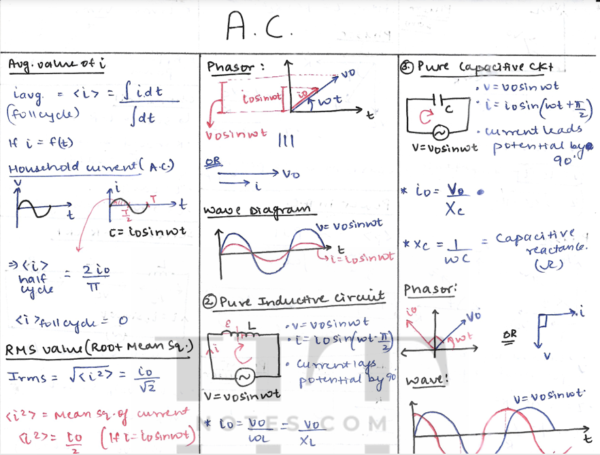 A.C.
Avg. value of i
iavg. = <i> = ∫idt / ∫dt
(full cycle)
If i = f(t)
Household current (A.C.)
V
t
i
T
T/2
t
i = i₀sinωt
⇒ <i> half cycle = 2i₀/π
<i> full cycle = 0
RMS value (Root Mean Sq.)
Irms = √<i²> = i₀/√2
<i²> = Mean Sq. of current
<i²> = i₀/2 (If i = i₀sinωt)
Phasor:
V₀
i₀sinωt
i₀
ωt
V₀sinωt
t
|||
OR
V₀
i
Wave Diagram
V = V₀sinωt
t
i = i₀sinωt
② Pure Inductive Circuit
ε
L
i
V = V₀sinωt
• V = V₀sinωt
• i = i₀sin(ωt - π/2)
• Current lags
potential by 90
* i₀ = V₀/ωL = V₀/XL
③ Pure Capacitive CKt
C
V = V₀sinωt
• V = V₀sinωt
• i = i₀sin(ωt + π/2)
• current leads
potential by
90°
* i₀ = V₀/XC
* XC = 1/ωC = Capacitive
reactance
(Ω)
Phasor:
i₀
V₀
ωt
OR
i
V
Wave:
V = V₀sinωt
t
NOTES.COM